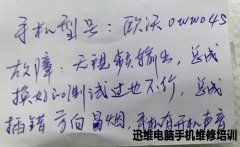 手机型号：欧沃 OWWO4S
故障：无视频输出，总成
换好的测试过也不行，总成
插错方向冒烟，手机有开机声音
迅维电脑手机维修培训